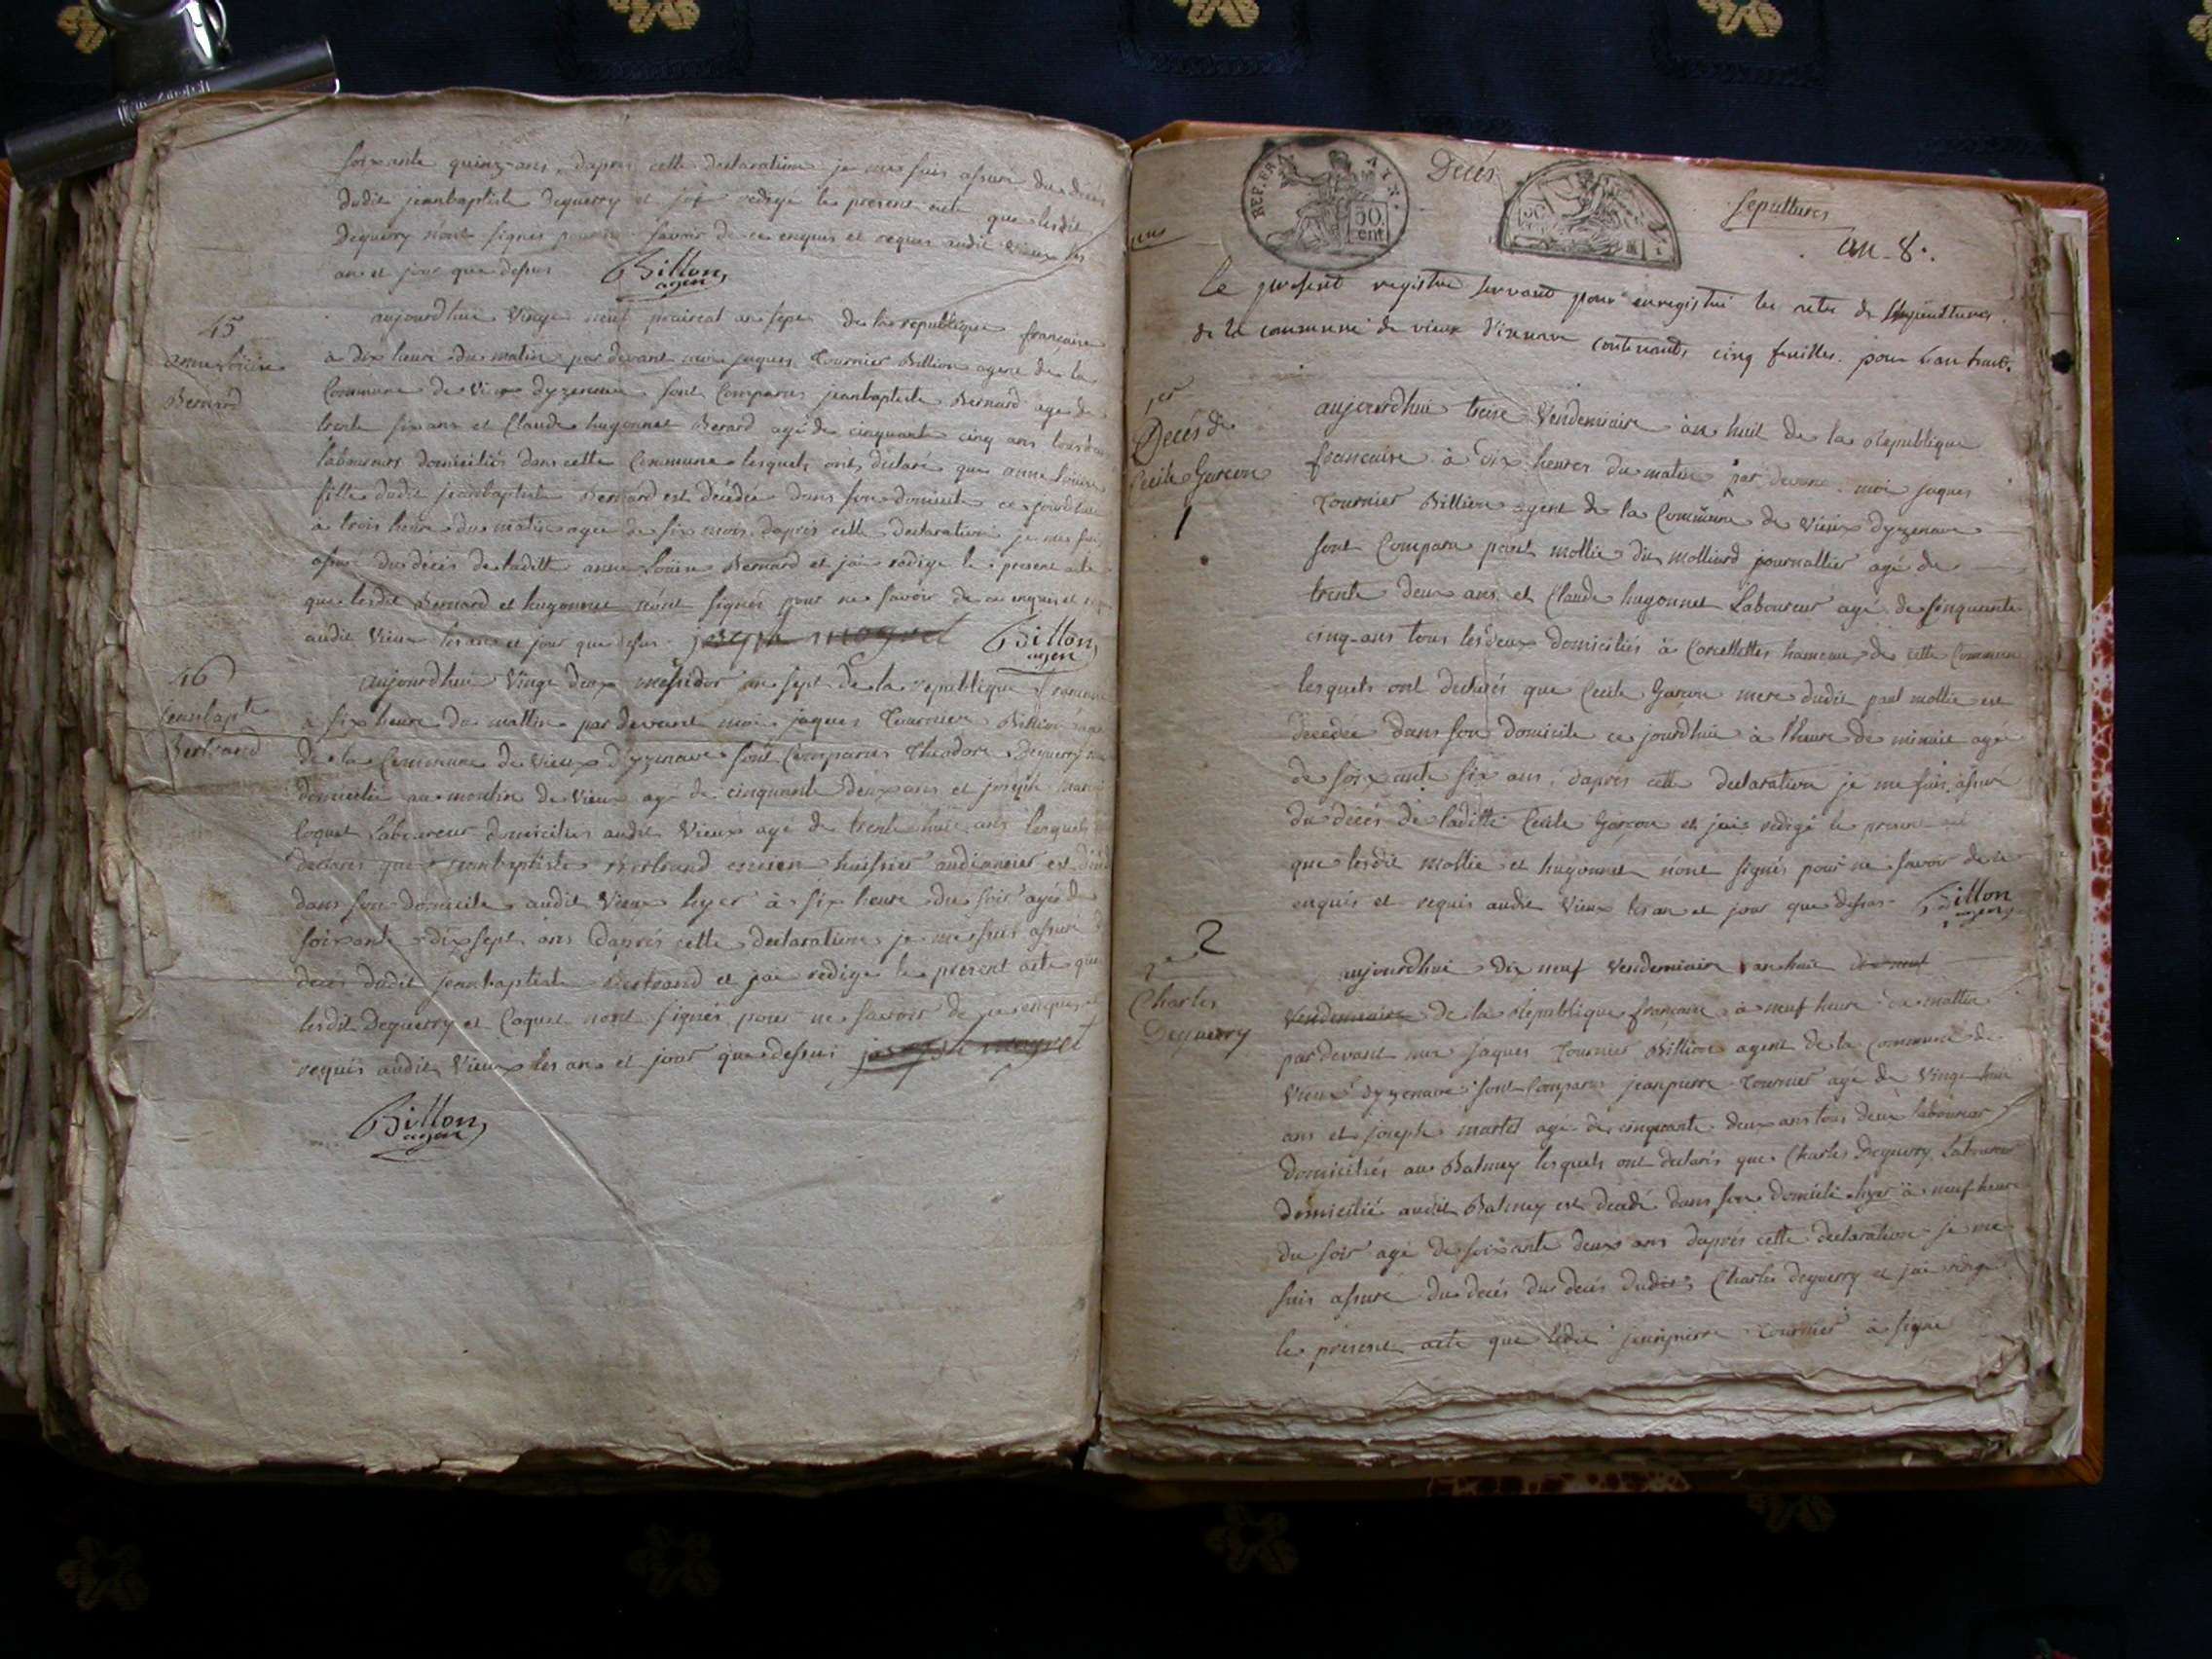 soixante quinze ans, dapres cette declaration je me suis assuré du decés
dudit jeanbaptiste Deguerry et jai redigé le present acte que lesdit
Deguerry nont signés pour ne savoir de ce enquis et requis audit vieux les
an et jour que dessus Billon
agent
aujourdhui vingt neuf praireal an sept de la republique française
45
anne loüise
Bernard
à dix heure du matin par devant moi jaques Tournier Billion agent de la
Commune de Vieux dyzenave sont Comparus jeanbaptiste Bernard agé de
trente six ans et Claude hugonnet Berard agé de cinquante cinq ans tous deux
laboureurs domiciliés dans cette Commune lesquels onts déclaré que anne loüise
fille dudit jeanbaptiste Bernard est décédée dans son domicile ce jourdhui
à trois heure du matin agée de six mois, daprés cette declaration je me suis
assuré du décés de laditte anne loüise Bernard et jai redigé le present acte
que lesdit Bernard et hugonnet nont signés pour ne savoir de ce enquis et
audit Vieux les an et jour que dessus joseph Billon
agent
46
jeanbapte
Bertrand
aujourdhui vingt deux messidor an sept de la republique francaise
à six heure du mattin par devant moi jaques Tournier Billion
de la Commune de Vieux dyzenave sont Comparus Theodore Deguerry
domicilié au moulin de Vieux agé de cinquante deux ans et joseph
Coquet laboureur domiciliés audit Vieux agé de trente huit ans lesquels
declarés que jeanbaptiste Bertrand encien huissier audiancier est
dans son domicile audit Vieux hyer à six heure du soir agé de
soixante dix sept ans daprés cette declaration je me suis assuré
decés dudit jeanbaptiste Bertrand et jai redigé le present acte que
lesdit Deguerry et Coquet nont signés pour ne savoir de ce enquis et
requis audit Vieux les an et jour que dessus joseph
Billon
agent
REP. FRA.
50
cent
Decés
Sepultures
an 8.
Le present registre servant pour enregistré les actes de sepultures
de la commune de vieux d'izenave contenants cinq feuilles. pour l'an huit.
1er
Decés de
Cecile Garcon
1
aujourdhui treise Vendemiaire an huit de la Republique
francaise à dix heures du matin par devant moi jaques
Tournier Billion agent de la Commune de Vieux dyzenave
sont Comparu paul mollie dit molliard journallier agé de
trente deux ans et Claude hugonnet Laboureur agé de sinquante
cinq ans tous les deux domiciliés à Corcellettes hameau de cette Commune
lesquels ont declarés que Cecile Garcon mere dudit paul mollie est
decedée dans son domicile ce jourdhui à lheure de minuit agé
de soixante six ans, daprés cette declaration je me suis assuré
du décés de laditte Cecile Garcon et jai redigé le present
que lesdit mollie et hugonnet nont signés pour ne savoir de ce
enquis et requis audit Vieux les an et jour que dessus Billon
agent
2
2e
Charles
Deguerry
aujourdhui dix neuf Vendemiaire an huit dix neuf
Vendemiaire de la Republique francaise à neuf heure du mattin
par devant moi jaques Tournier Billion agent de la Commune de
Vieux dyzenave sont Comparus jeanpierre Tournier agé de Vingt huit
ans et joseph martel agé de cinquante deux ans tous deux laboureur
domiciliés au Balmey lesquels ont declarés que Charles Deguerry Laboureur
domicilié audit Balmey est decedé dans son domicile hyer à neuf heure
du soir agé de soixante deux ans daprés cette declaration je me
suis assuré du decés du decés dudit Charles deguerry et jai redigé
le present acte que ledit jeanpierre Tournier à signé